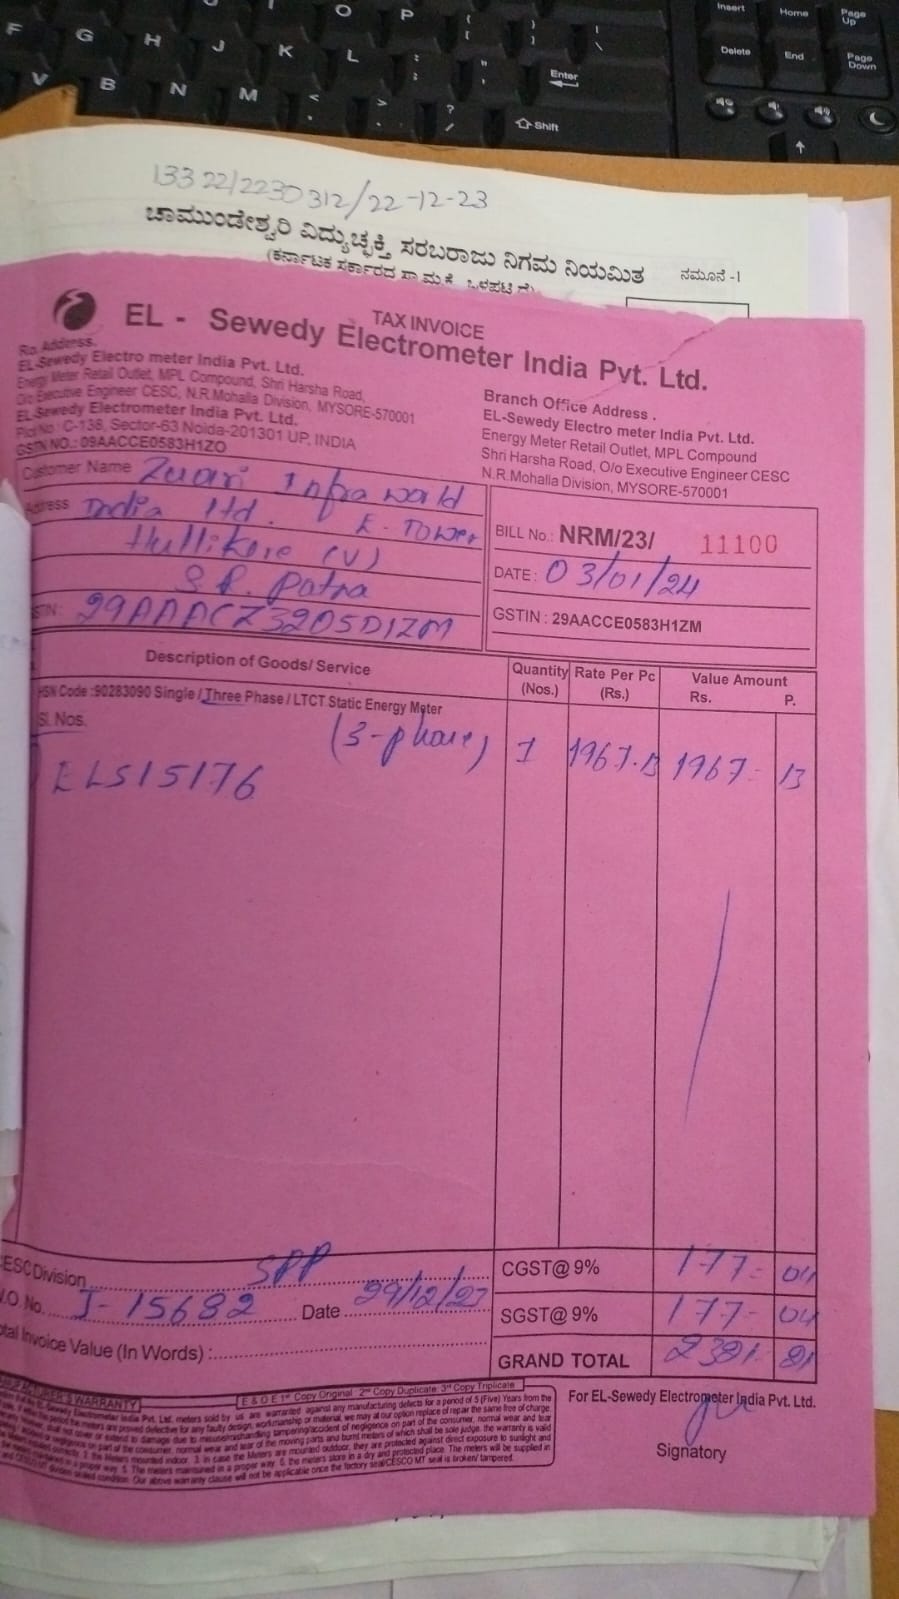 Insert Home Page Up
O P { [ } ] | \
Delete End Page Down
F G H J K L : ; " ' Enter
V B N M < , > . ? / Shift
13322/2230312/22-12-23
ಚಾಮುಂಡೇಶ್ವರಿ ವಿದ್ಯುಚ್ಛಕ್ತಿ ಸರಬರಾಜು ನಿಗಮ ನಿಯಮಿತ
ನಮೂನೆ -I
(ಕರ್ನಾಟಕ ಸರ್ಕಾರದ
TAX INVOICE
EL - Sewedy Electrometer India Pvt. Ltd.
Ro. Address.
EL-Sewedy Electro meter India Pvt. Ltd.
Energy Meter Retail Outlet, MPL Compound, Shri Harsha Road,
O/o Executive Engineer CESC, N.R.Mohalla Division, MYSORE-570001
EL-Sewedy Electrometer India Pvt. Ltd.
Plot No : C-138, Sector-63 Noida-201301 UP, INDIA
GSTIN NO.: 09AACCE0583H1ZO
Branch Office Address .
EL-Sewedy Electro meter India Pvt. Ltd.
Energy Meter Retail Outlet, MPL Compound
Shri Harsha Road, O/o Executive Engineer CESC
N.R.Mohalla Division, MYSORE-570001
Customer Name Zuari Infraworld
Address India ltd. E-Tower
Hullikere (V)
S.R. Patna
GSTIN : 29AAACZ3205D1ZM
BILL No.: NRM/23/ 11100
DATE : 03/01/24
GSTIN : 29AACCE0583H1ZM
Description of Goods/ Service Quantity (Nos.) Rate Per Pc (Rs.) Value Amount Rs. P.
HSN Code :90283090 Single / Three Phase / LTCT Static Energy Meter
Sl. Nos.
(3-phase) 1 1967.13 1967 - 13
ELS15176
CESC Division SPP
W.O. No. J-15682 Date 29/12/23
Total Invoice Value (In Words) :
CGST@ 9% 177 - 04
SGST@ 9% 177 - 04
GRAND TOTAL
E & O E 1st Copy Original 2nd Copy Duplicate 3rd Copy Triplicate
MANUFACTURER'S WARRANTY
For EL-Sewedy Electrometer India Pvt. Ltd.
Signatory